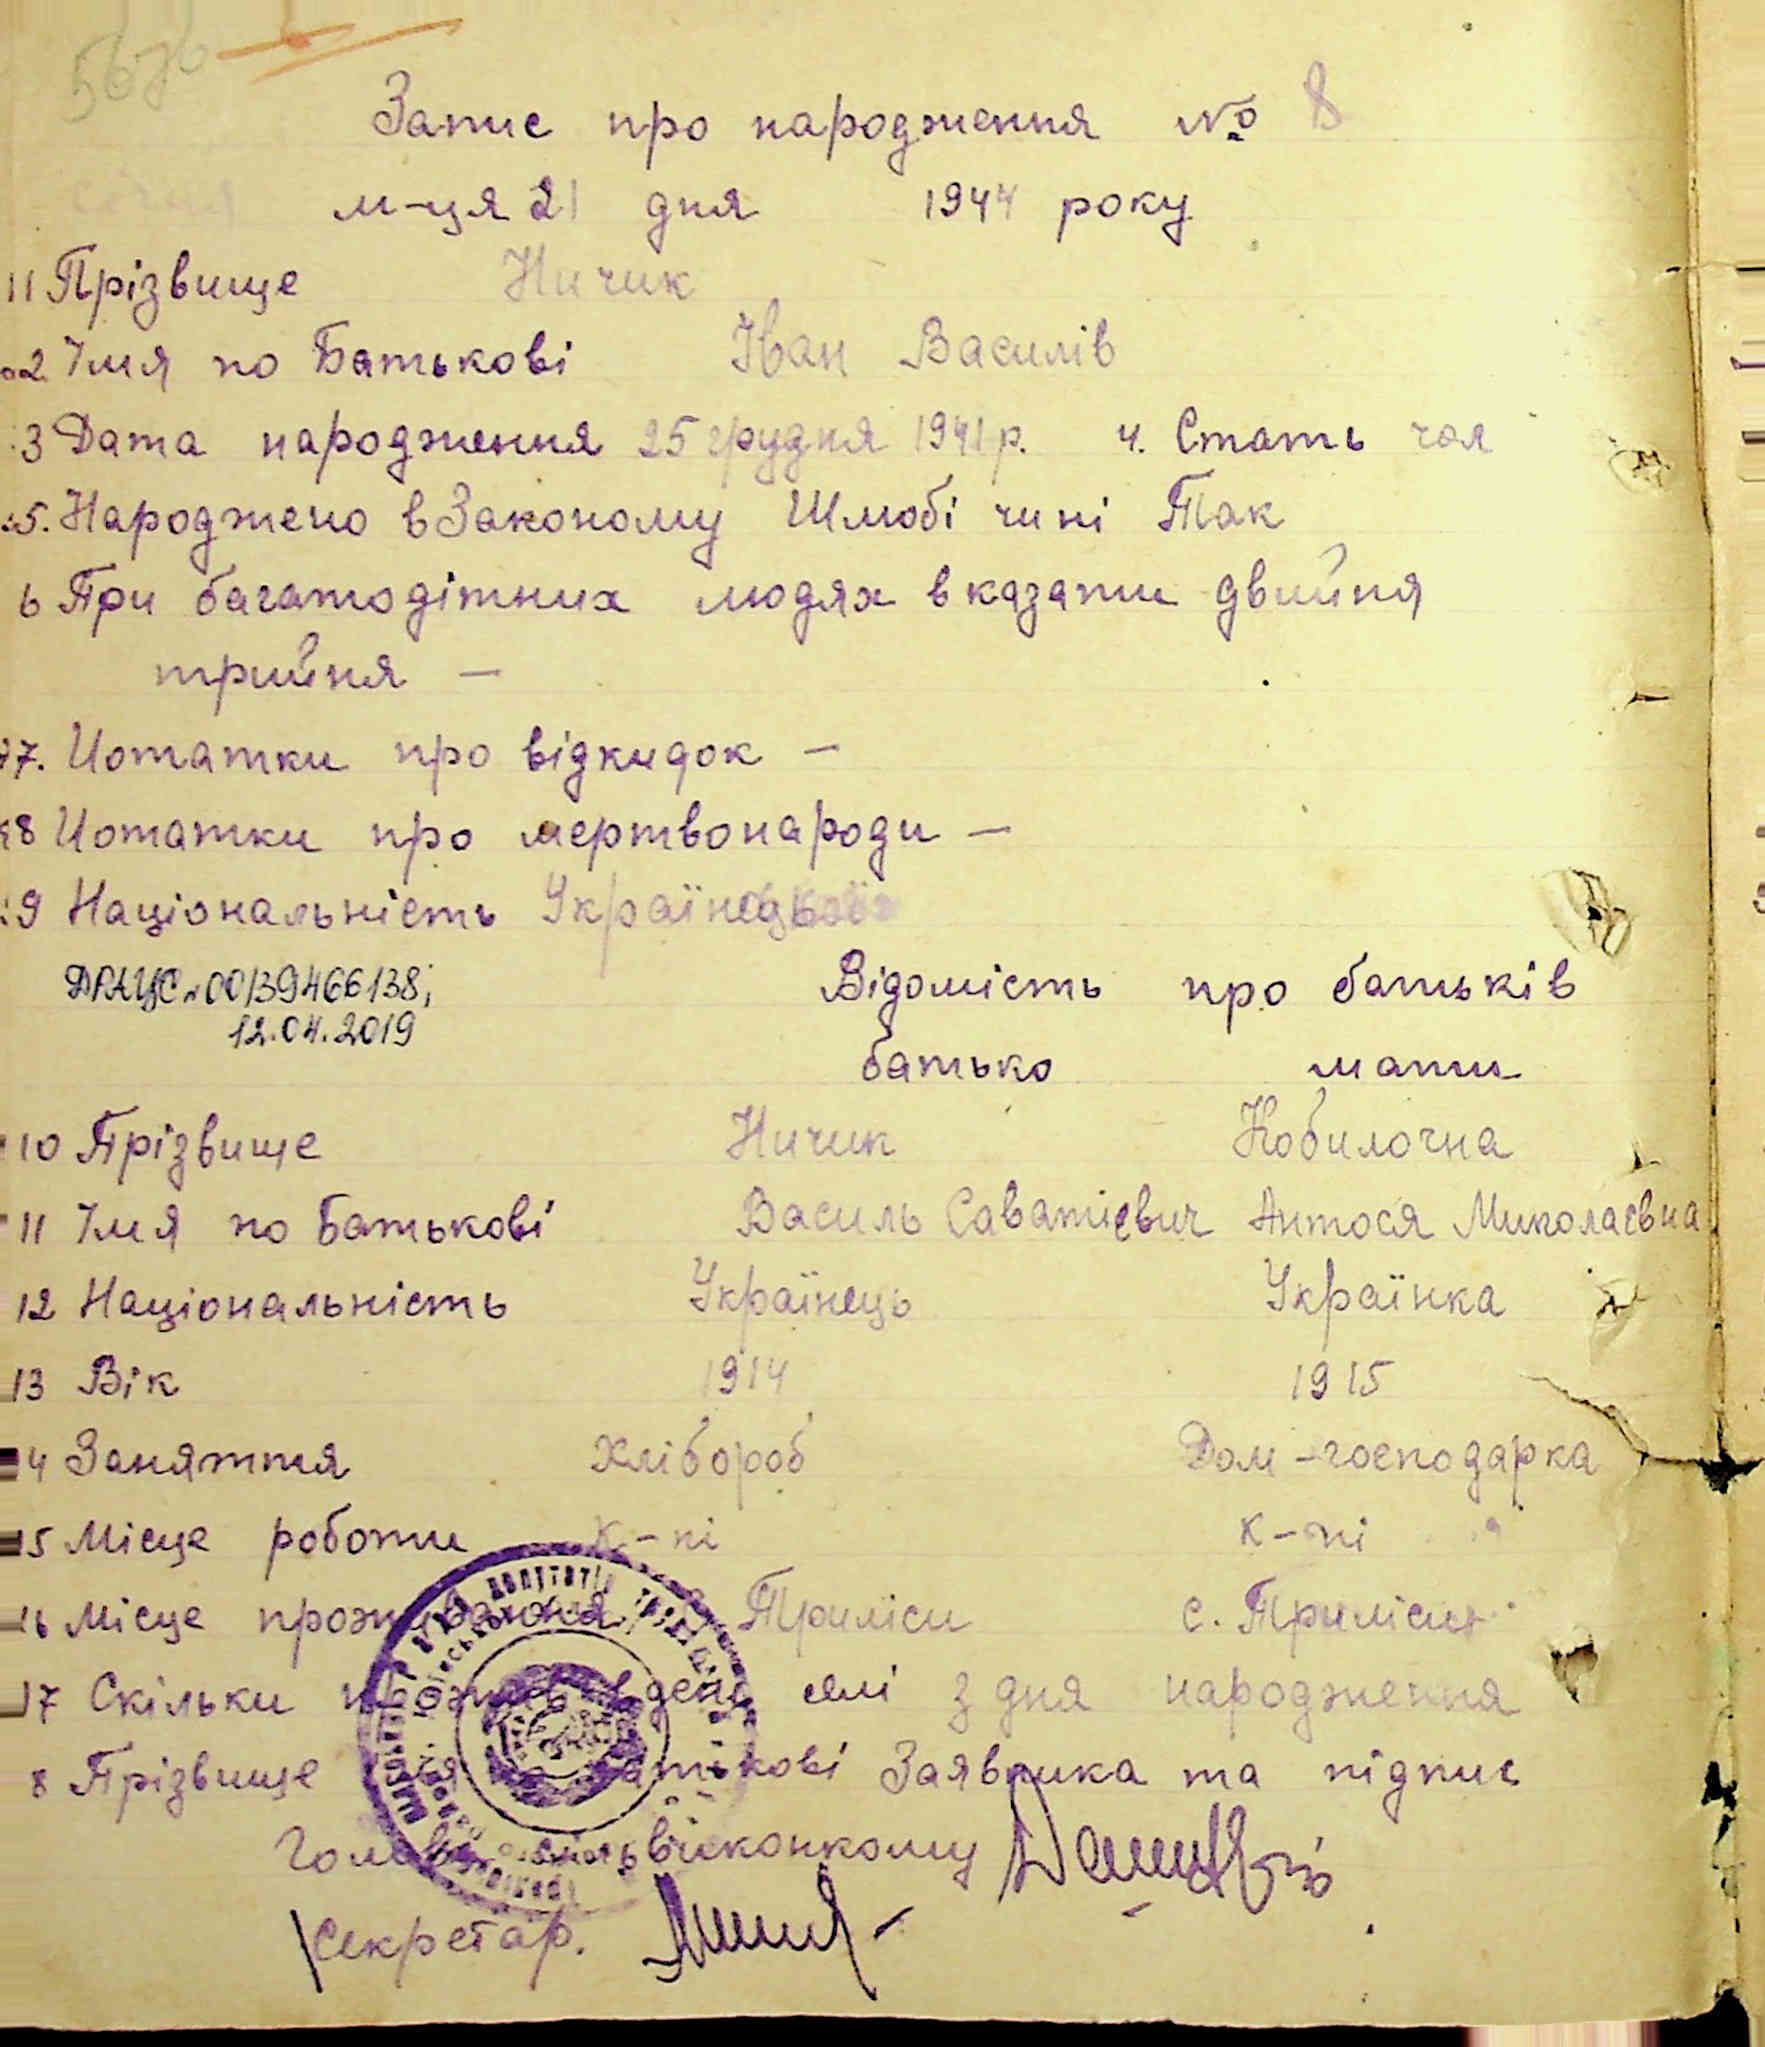 5676
Запис про народження № 8
січня м-ця 21 дня 1944 року
11 Прізвище Ничик
2 Імя по Батькові Іван Василів
3 Дата народження 25 грудня 1941 р. 4. Стать чол
5. Народжено в Законому Шлюбі чи ні Так
6 При багатодітних людях вказати двийня
трийня —
7. Нотатки про відкидок —
8 Нотатки про мертвонароди —
9 Національність
ДРАЦС № 00139466138;
12.04.2019
Відомість про батьків
батько мати
10 Прізвище Ничик Кобилочна
11 Імя по Батькові Василь Саватієвич Антося Миколаєвна
12 Національність Українець Українка
13 Вік 1914 1915
14 Заняття Хлібороб Дом-господарка
15 Місце роботи к-пі к-пі
16 Місце проживання Триліси с. Триліси
17 Скільки селі з дня народження
8 Прізвище батькові Заявника та підпис
Голова виконкому
Секретар.